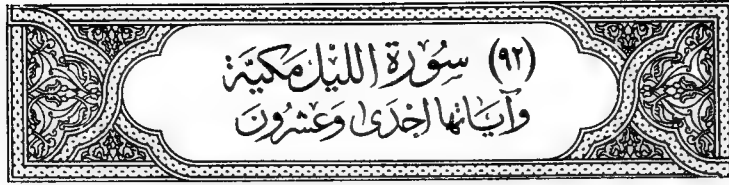 (٩٢) سُوْرَةُ اللَّيْلِ مَكِيَّة
وَآيَاتُهَا إِحْدَى وَعِشْرُونَ